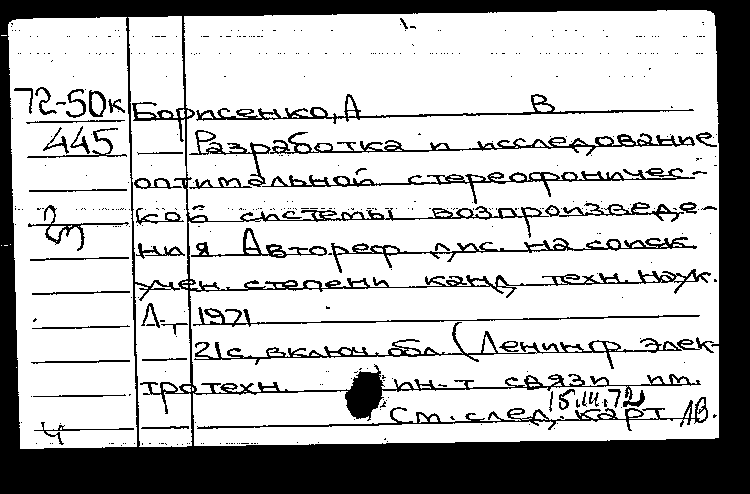 72-50к Борисенко, А В
445 Разработка и исследование
оптимальной стереофоничес-
кой системы воспроизведе-
ния Автореф дис. на соиск
учен. степени канд. техн. наук.
Л., 1971
21с., включ. обл. (Ленингр. элек-
тротехн. ин-т связи им.
15.III.72
См. след. карт. ЛВ.
ч